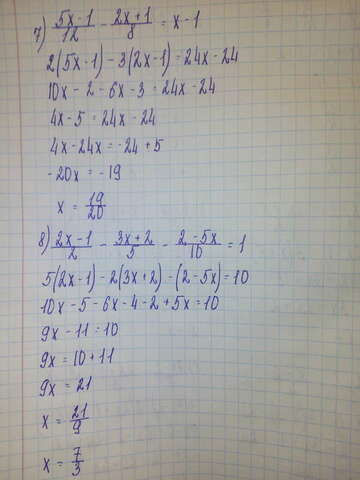 7) (5x-1)/12 - (2x+1)/8 = x-1
2(5x-1)-3(2x-1)=24x-24
10x-2-6x-3=24x-24
4x-5=24x-24
4x-24x=-24+5
-20x=-19
x = 19/20
8) (2x-1)/2 - (3x+2)/5 - (2-5x)/10 = 1
5(2x-1)-2(3x+2)-(2-5x)=10
10x-5-6x-4-2+5x=10
9x-11=10
9x=10+11
9x=21
x = 21/9
x = 7/3